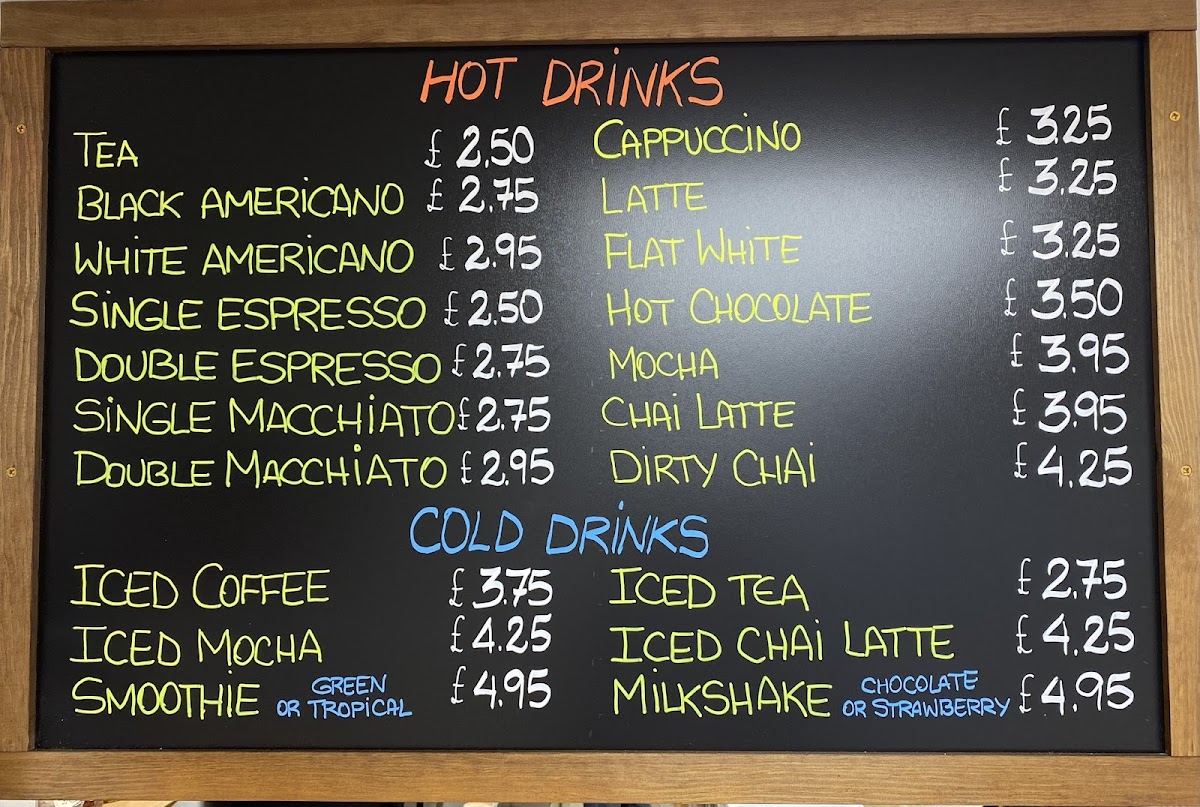 HOT DRINKS
TEA £ 2.50
BLACK AMERICANO £ 2.75
WHITE AMERICANO £ 2.95
SINGLE ESPRESSO £ 2.50
DOUBLE ESPRESSO £ 2.75
SINGLE MACCHIATO £ 2.75
DOUBLE MACCHIATO £ 2.95
CAPPUCCINO £ 3.25
LATTE £ 3.25
FLAT WHITE £ 3.25
HOT CHOCOLATE £ 3.50
MOCHA £ 3.95
CHAI LATTE £ 3.95
DIRTY CHAI £ 4.25
COLD DRINKS
ICED COFFEE £ 3.75
ICED MOCHA £ 4.25
SMOOTHIE GREEN OR TROPICAL £ 4.95
ICED TEA £ 2.75
ICED CHAI LATTE £ 4.25
MILKSHAKE CHOCOLATE OR STRAWBERRY £ 4.95